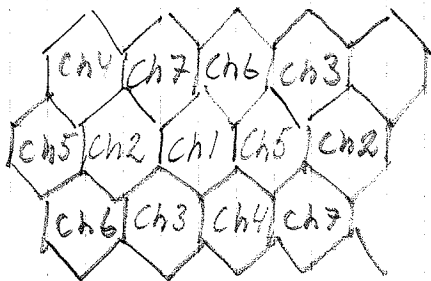 Ch4 Ch7 Ch6 Ch3
Ch5 Ch2 Ch1 Ch5 Ch2
Ch6 Ch3 Ch4 Ch7